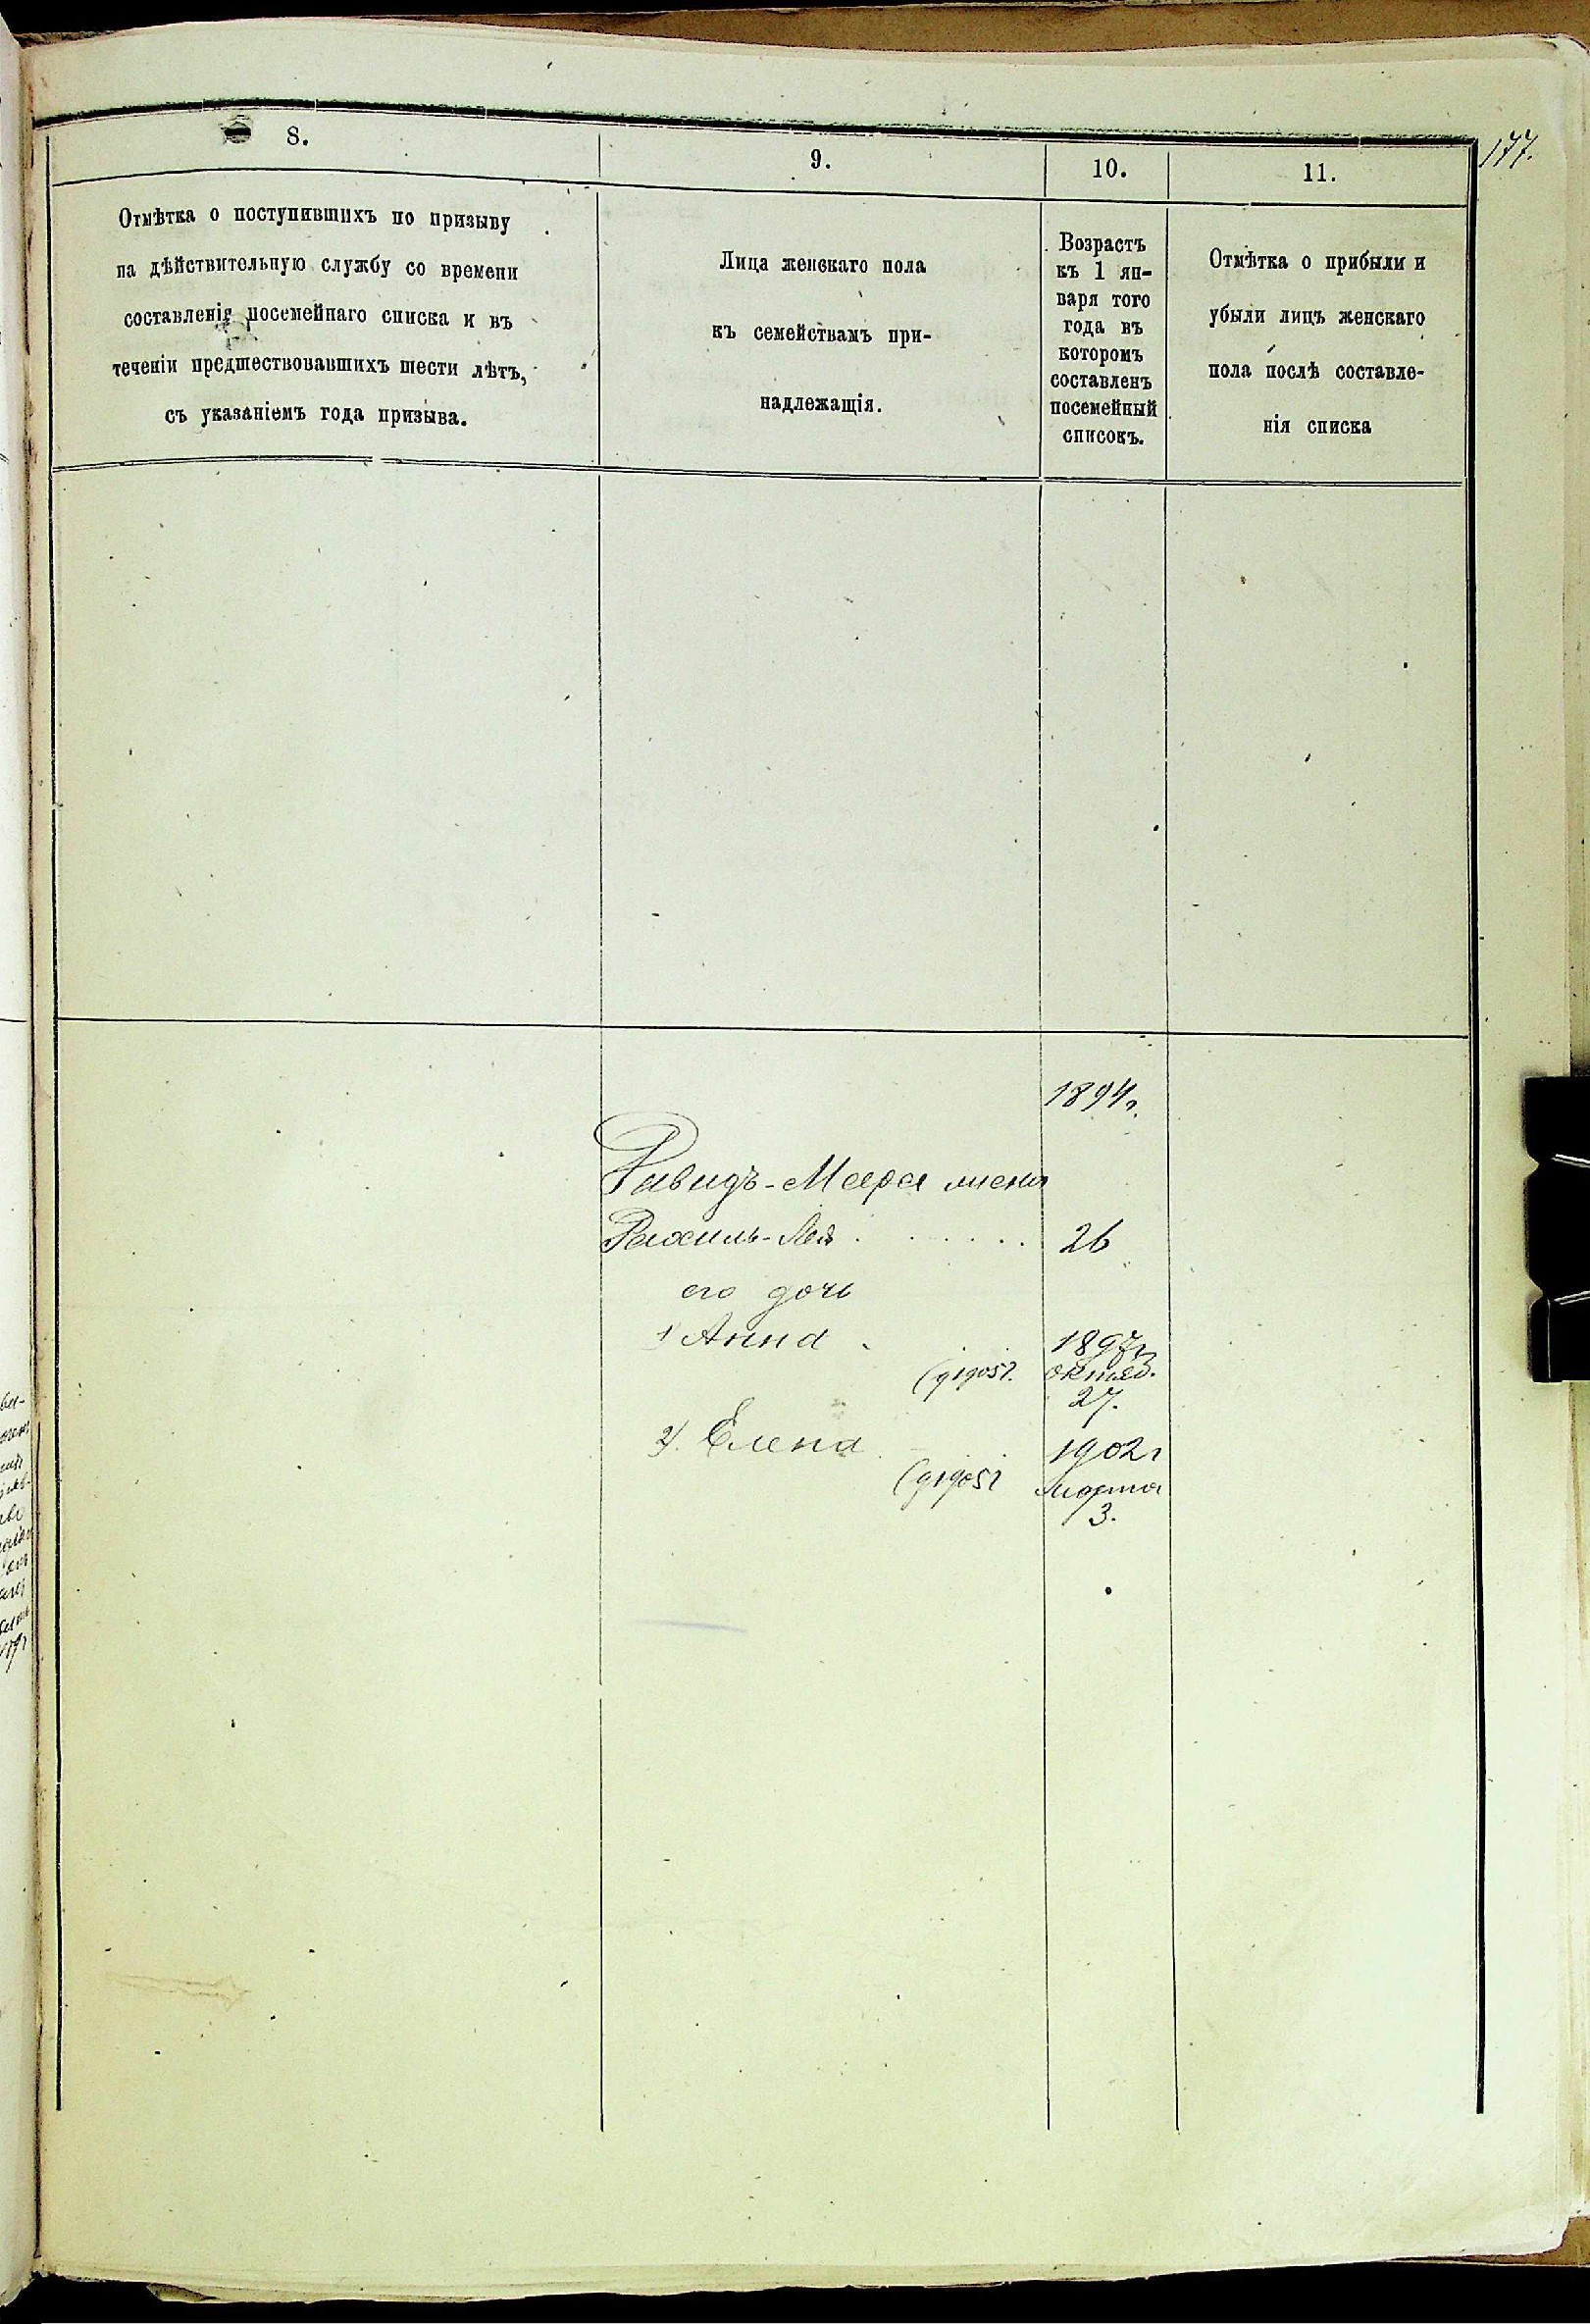 177.
8.
9.
10.
11.
Отмѣтка о поступившихъ по призыву
на дѣйствительную службу со времени
составленія посемейнаго списка и въ
теченіи предшествовавшихъ шести лѣтъ,
съ указаніемъ года призыва.
Лица женскаго пола
къ семействамъ при-
надлежащія.
Возрастъ
къ 1 ян-
варя того
года въ
которомъ
составленъ
посемейный
списокъ.
Отмѣтка о прибыли и
убыли лицъ женскаго
пола послѣ составле-
нія списка
1894г.
-Меера жена
Рахиль-Лея . . . . . 26
его дочь
1) Анна 1897г
(д1905г. октяб.
27.
2). Елена 1902г
(д1905г марта
3.